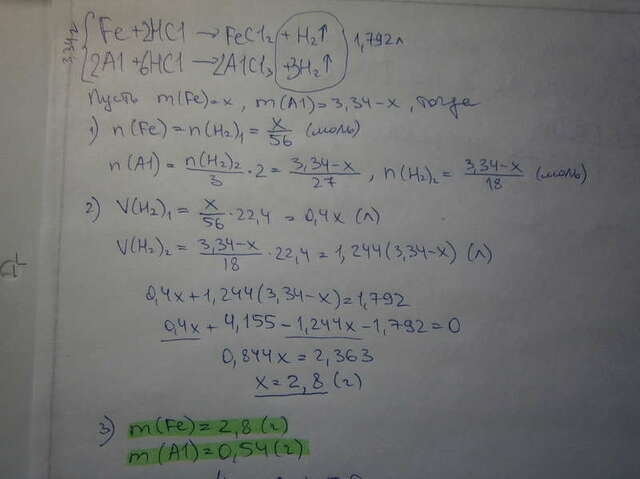 3,34г { Fe + 2HCl → FeCl₂ + H₂↑ 1,792л
2Al + 6HCl → 2AlCl₃ + 3H₂↑
Пусть m(Fe)=x, m(Al)=3,34-x, тогда
1) n(Fe) = n(H₂)₁ = x/56 (моль)
n(Al) = n(H₂)₂/3 · 2 = 3,34-x/27, n(H₂)₂ = 3,34-x/18 (моль)
2) V(H₂)₁ = x/56 · 22,4 = 0,4x (л)
V(H₂)₂ = 3,34-x/18 · 22,4 = 1,244(3,34-x) (л)
0,4x + 1,244(3,34-x) = 1,792
0,4x + 4,155 - 1,244x - 1,792 = 0
0,844x = 2,363
x = 2,8 (г)
3) m(Fe) = 2,8 (г)
m(Al) = 0,54 (г)